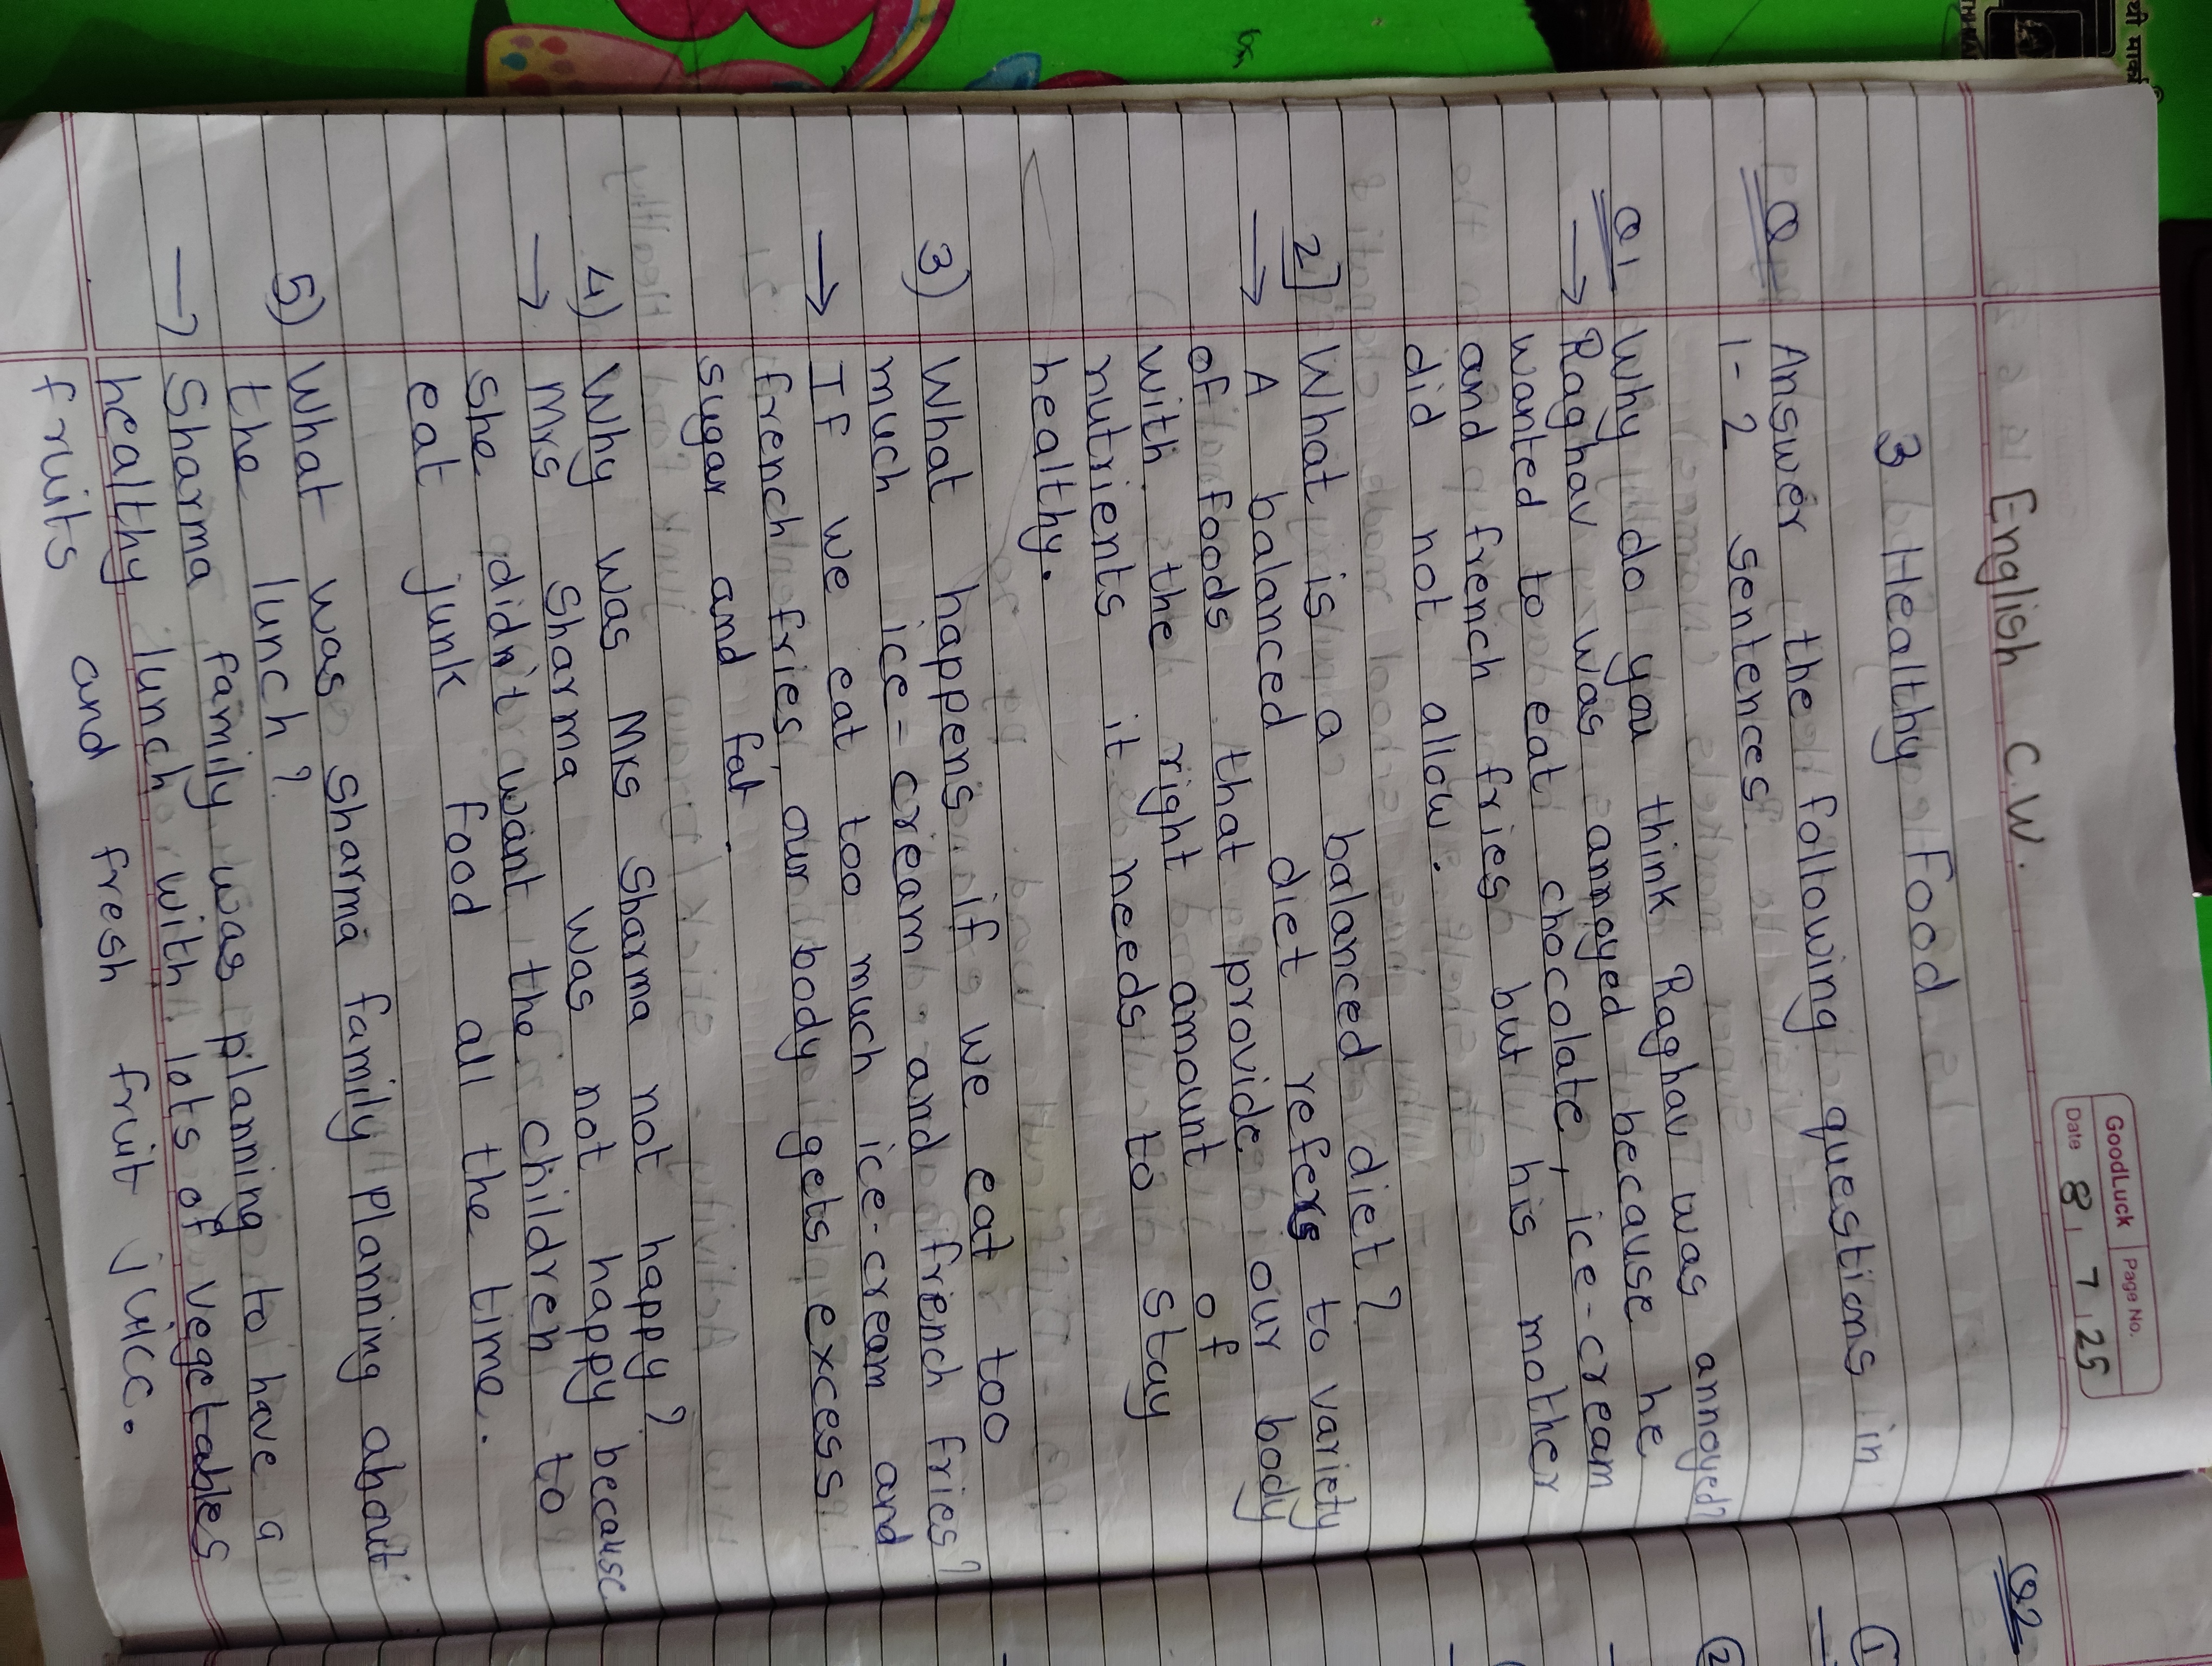 GoodLuck Page No.
Date 8 7 25
English C.W.
3 Healthy Food
Q Answer the following questions in
1-2 sentences
Q1 Why do you think Raghav was annoyed?
→ Raghav was annoyed because he
wanted to eat chocolate, ice-cream
and french fries but his mother
did not allow.
2 What is a balanced diet?
→ A balanced diet refers to variety
of foods that provide our body
with the right amount of
nutrients it needs to stay
healthy.
3) What happens if we eat too
much ice-cream and french fries?
→ If we eat too much ice-cream and
french fries, our body gets excess
sugar and fat.
4) Why was Mrs Sharma not happy?
→ Mrs Sharma was not happy because
she didn't want the children to
eat junk food all the time.
5) What was Sharma family planning about
the lunch?
→ Sharma family was planning to have a
healthy lunch with lots of vegetables
fruits and fresh fruit juice.
Q2
1
2